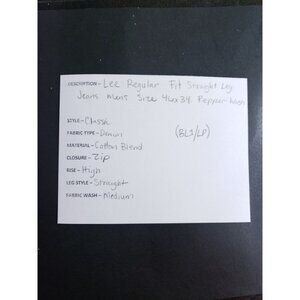 DESCRIPTION - Lee Regular Fit Straight Leg
Jeans Mens Size 46x34 Pepper Wash
STYLE - Classic
FABRIC TYPE - Denim (BL1/LP)
MATERIAL - Cotton Blend
CLOSURE - Zip
RISE - High
LEG STYLE - Straight
FABRIC WASH - Medium